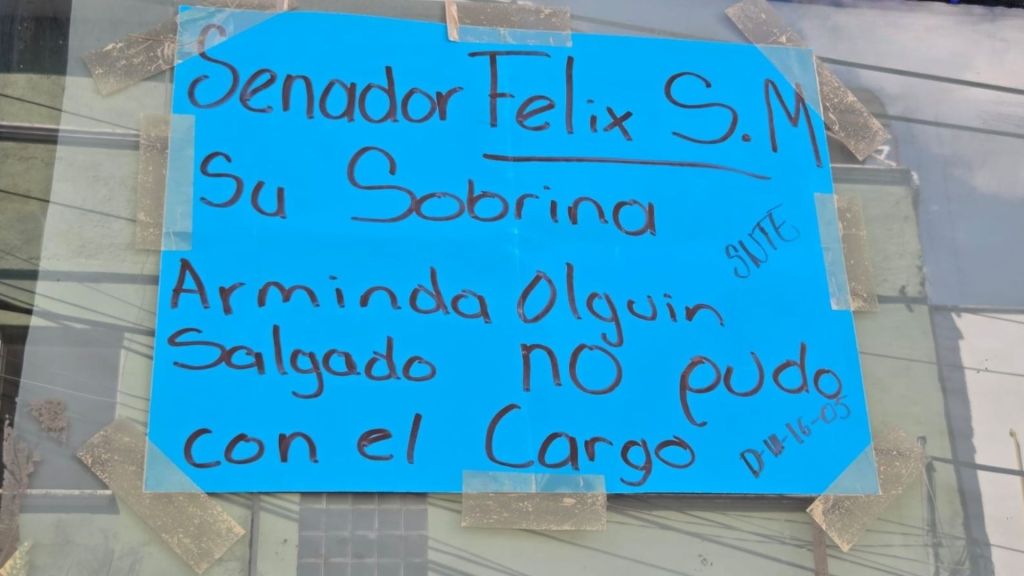 Senador Felix S.M
Su Sobrina
SNTE
Arminda Olguin
Salgado no pudo
con el Cargo
D-III-16-05